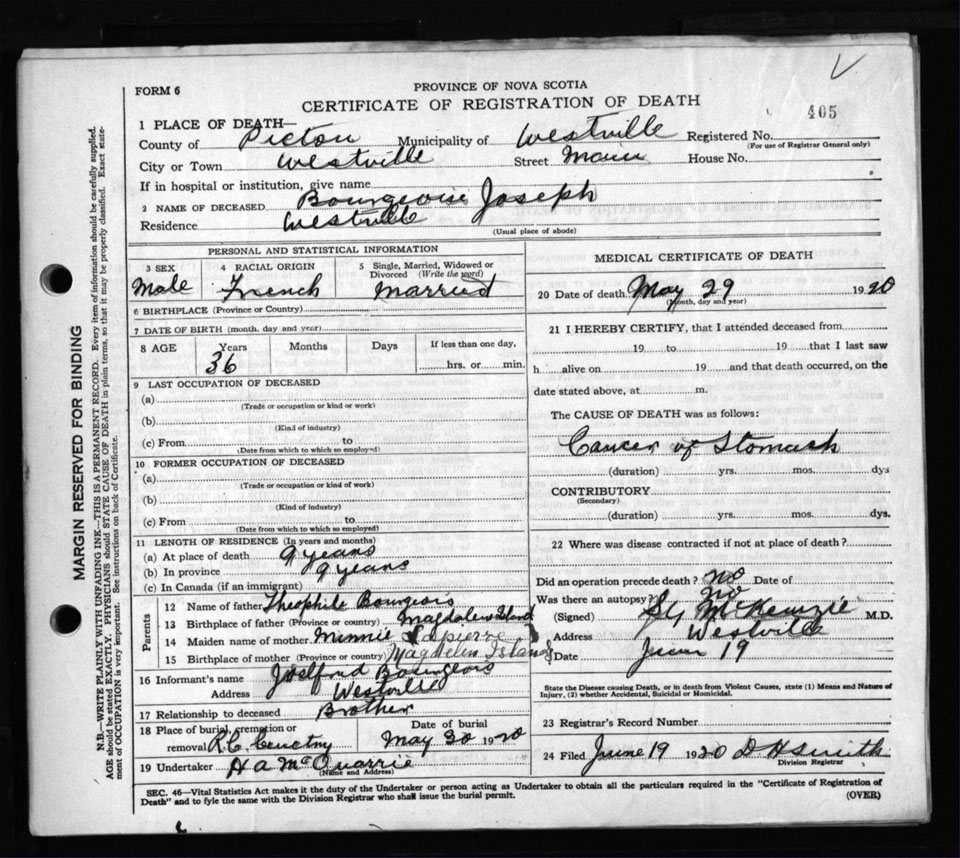 FORM 6
PROVINCE OF NOVA SCOTIA
CERTIFICATE OF REGISTRATION OF DEATH
405
1 PLACE OF DEATH—
County of Pictou Municipality of Westville Registered No.
(For use of Registrar General only)
City or Town Westville Street Main House No.
If in hospital or institution, give name
2 NAME OF DECEASED Bourgeois Joseph
Residence Westville
(Usual place of abode)
PERSONAL AND STATISTICAL INFORMATION
3 SEX 4 RACIAL ORIGIN 5 Single, Married, Widowed or Divorced (Write the word)
Male French Married
6 BIRTHPLACE (Province or Country)
7 DATE OF BIRTH (month, day and year)
8 AGE Years Months Days If less than one day,
36 hrs. or min.
9 LAST OCCUPATION OF DECEASED
(a)
(Trade or occupation or kind or work)
(b)
(Kind of industry)
(c) From to
(Date from which to which so employed)
10 FORMER OCCUPATION OF DECEASED
(a)
(Trade or occupation or kind of work)
(b)
(Kind of industry)
(c) From to
(Date from which to which so employed)
11 LENGTH OF RESIDENCE (In years and months)
(a) At place of death 9 years
(b) In province 9 years
(c) In Canada (if an immigrant)
Parents
12 Name of father Theophile Bourgeois
13 Birthplace of father (Province or country) Magdalen Island
14 Maiden name of mother Minnie Lapierre
15 Birthplace of mother (Province or country) Magdalen Islands
16 Informant's name Bourgeois
Address Westville
17 Relationship to deceased Brother
18 Place of burial, cremation or removal R.C. Cemetry Date of burial May 30 1920
19 Undertaker H A McQuarrie
(Name and Address)
MEDICAL CERTIFICATE OF DEATH
20 Date of death May 29 1920
(Month, day and year)
21 I HEREBY CERTIFY, that I attended deceased from
19 to 19 that I last saw
h alive on 19 and that death occurred, on the
date stated above, at m.
The CAUSE OF DEATH was as follows:
Cancer of Stomach
(duration) yrs. mos. dys
CONTRIBUTORY
(Secondary)
(duration) yrs. mos. dys.
22 Where was disease contracted if not at place of death?
Did an operation precede death? no Date of
Was there an autopsy? no
(Signed) McKenzie M.D.
Address Westville
Date June 19
State the Disease causing Death, or in death from Violent Causes, state (1) Means and Nature of
Injury, (2) whether Accidental, Suicidal or Homicidal.
23 Registrar's Record Number
24 Filed June 19 1920 D H Smith
Division Registrar
SEC. 46—Vital Statistics Act makes it the duty of the Undertaker or person acting as Undertaker to obtain all the particulars required in the "Certificate of Registration of
Death" and to fyle the same with the Division Registrar who shall issue the burial permit.
(OVER)
MARGIN RESERVED FOR BINDING
N.B.—WRITE PLAINLY WITH UNFADING INK—THIS IS A PERMANENT RECORD. Every item of information should be carefully supplied.
AGE should be stated EXACTLY. PHYSICIANS should STATE CAUSE OF DEATH in plain terms, so that it may be properly classified. Exact state-
ment of OCCUPATION is very important. See instructions on back of Certificate.